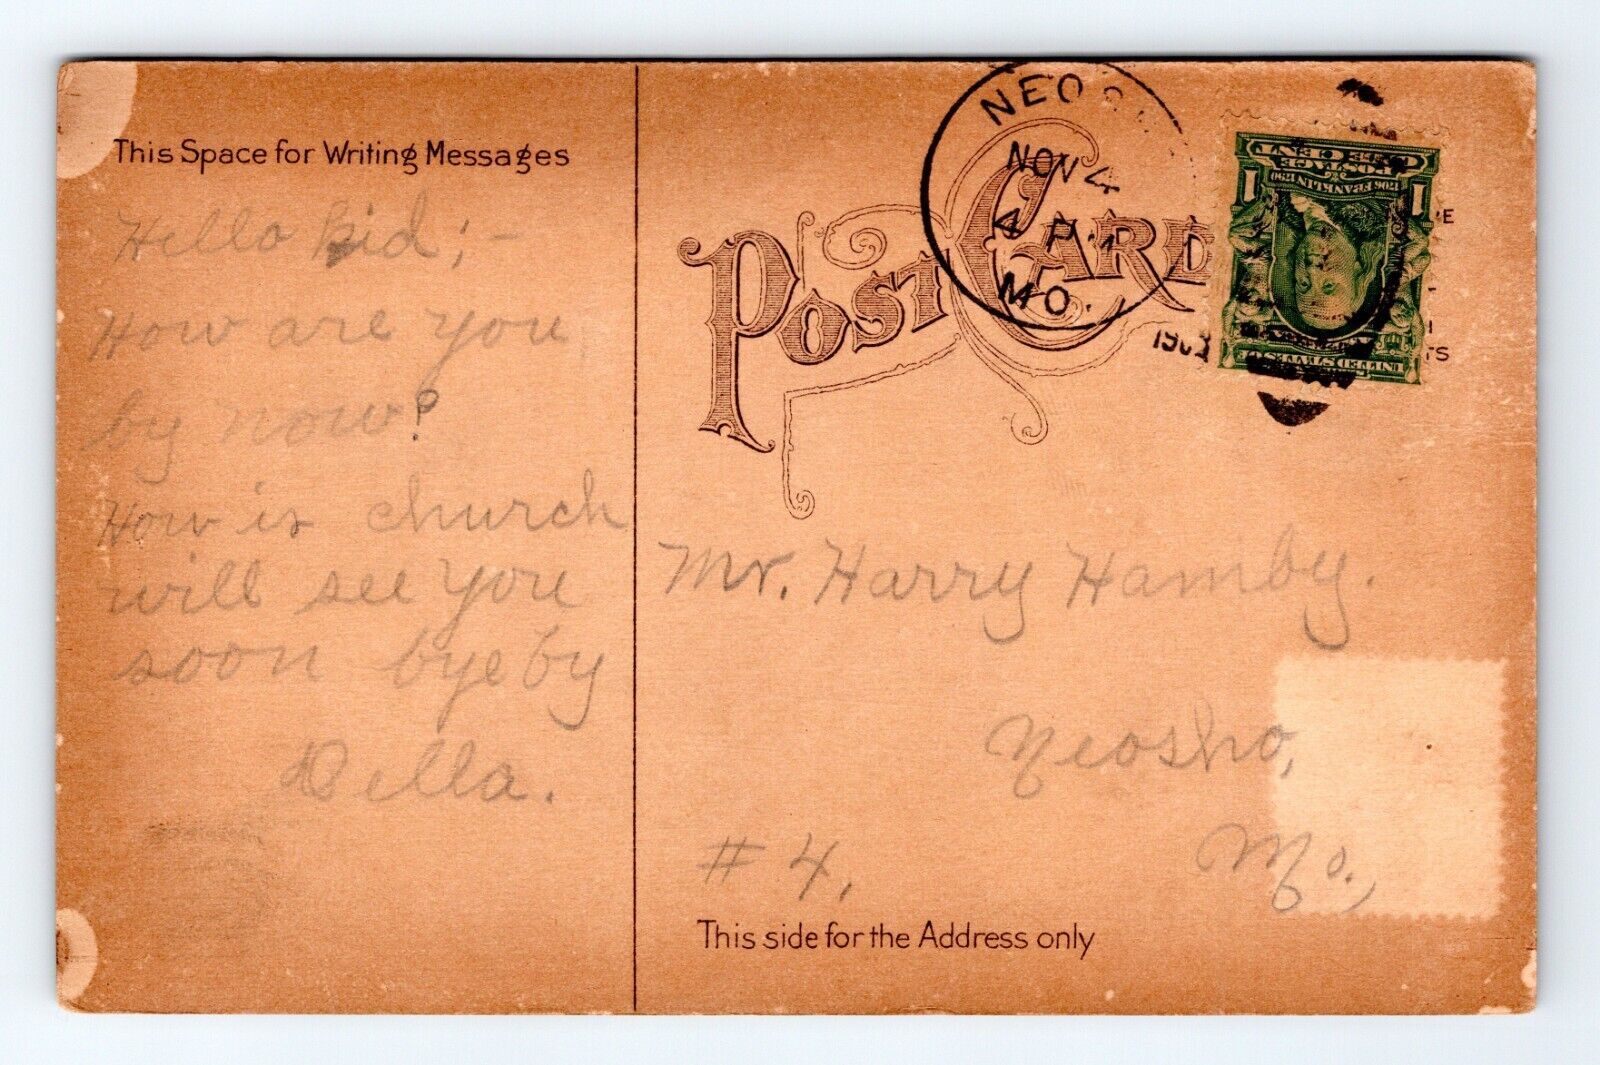 This Space for Writing Messages
Hello kid; -
How are you
by now?
How is church
will see you
soon bye by
Della.
POST CARD
NEOS
NOV 4
4 P M
MO.
1 POSTAGE ONE CENT 1
1706 FRANKLIN 1790
Mr. Harry Hamby.
Neosho,
# 4, Mo.,
This side for the Address only